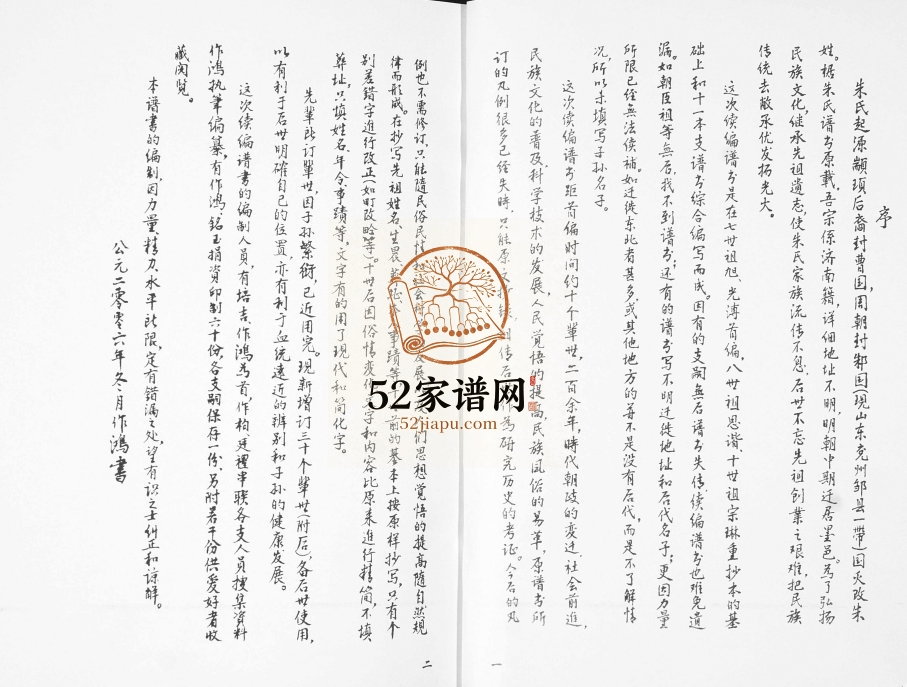 序
朱氏起源颛顼后裔封曹国，周朝封邾国(现山东兖州邹县一带)国灭改朱
姓。据朱氏谱书原载，吾宗係济南籍，详细地址不明，明朝中期迁居墨邑。为了弘扬
民族文化继承先祖遗志，使朱氏家族流传不息，后世不忘先祖创业之艰难，把民族
传统去散承优发扬光大。
这次续编谱书是在七世祖旭、光溥首编，八世祖思谐、十世祖宗琳重抄本的基
础上和十一本支谱书综合编写而成。因有的支嗣无后谱书失传续编谱书也难免遗
漏。如朝臣祖等无后，找不到谱书；还有的谱书写不明迁徙地址和后代名子；更因力量
所限已经无法续补。如迁徙东北者甚多或其他地方的并不是没有后代，而是不了解情
况，所以未填写子孙名子。
这次续编谱书距首编时间约十个辈世，二百余年，时代朝政的变迁，社会前进，
民族文化的普及，科学技术的发展，人民觉悟的提高，民族风俗的易革，原谱书所
订的凡例很多已经失时，只能原文抄录，留传后代作为研究历史的考证。今后的凡
例也不需修订，只能随民俗民情和社会发展人们思想觉悟的提高随自然规
律而形成。在抄写先祖姓名、生畏、事蹟等前的基本上按原样抄写，只有个
别差错字进行改正(如町改畛等)。十世后因俗情变化文字和内容比原来进行精简，不填
葬址，只填姓名、年令、事蹟等，文字有的用了现代和简化字。
先辈所订辈世，因子孙繁衍，已近用完。现新增订三十个辈世(附后)，备后世使用，
以有利于后世明确自己的位置，亦有利于血统远近的辨别和子孙的健康发展。
这次续编谱书的编制人员，有培吉、作鸿为首，作柏、廷禮串联各支人员搜集资料
作鸿执笔编纂，有作鸿、铭玉捐资印制六十份，各支嗣保存一份，另附若干份供爱好者收
藏阅览。
本谱书的编制，因力量、精力、水平所限，定有错漏之处，望有识之士纠正和谅解。
公元二零零六年冬月作鸿書
一
二
52家谱网
52jiapu.com